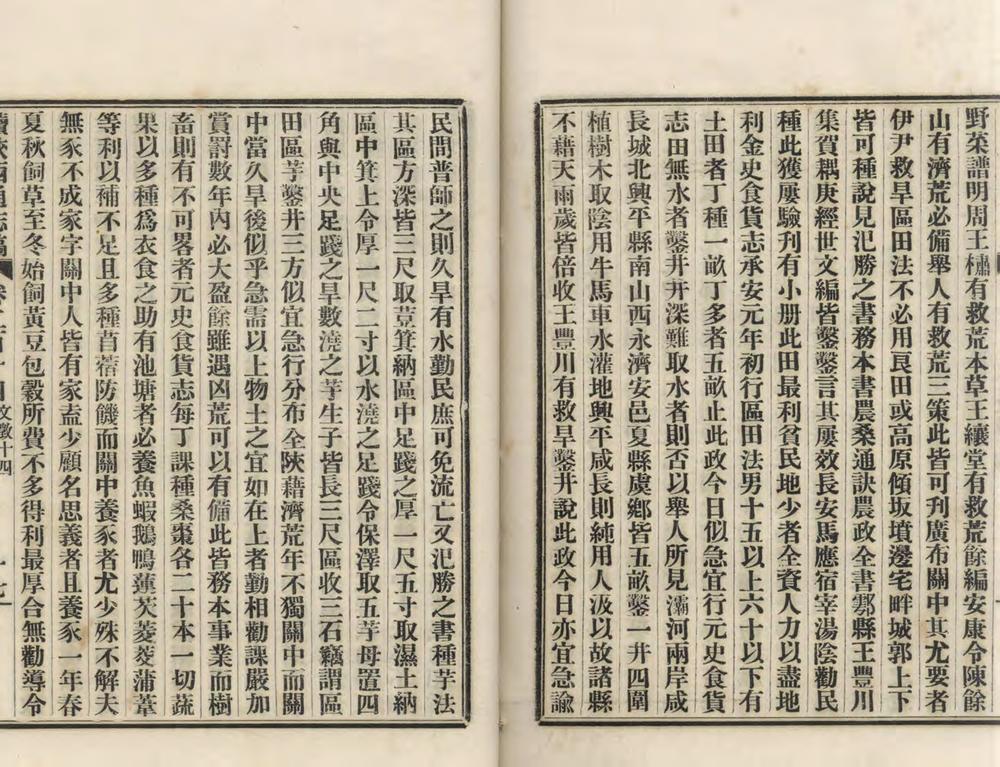 野菜譜明周王橚有救荒本草王纕堂有救荒餘編安康令陳餘
山有濟荒必備舉人有救荒三策此皆可刋廣布關中其尤要者
伊尹救旱區田法不必用良田或高原傾坂墳邊宅畔城郭上下
皆可種說見氾勝之書務本書農桑通訣農政全書鄠縣王豐川
集賀耦庚經世文編皆鑿鑿言其屢效長安馬應宿宰湯陰勸民
種此獲屢驗刋有小册此田最利貧民地少者全資人力以盡地
利金史食貨志承安元年初行區田法男十五以上六十以下有
土田者丁種一畝丁多者五畝止此政今日似急宜行元史食貨
志田無水者鑿井井深難取水者則否以舉人所見灞河兩岸咸
長城北興平縣南山西永濟安邑夏縣虞鄉皆五畝鑿一井四圍
植樹木取陰用牛馬車水灌地興平咸長則純用人汲以故諸縣
不藉天雨歲皆倍收王豐川有救旱鑿井說此政今日亦宜急諭
民間普師之則久旱有水勤民庶可免流亡又氾勝之書種芋法
其區方深皆三尺取荳箕納區中足踐之厚一尺五寸取濕土納
區中箕上令厚一尺二寸以水澆之足踐令保澤取五芋母置四
角與中央足踐之旱數澆之芋生子皆長三尺區收三石竊謂區
田區芋鑿井三方似宜急行分布全陝藉濟荒年不獨關中而關
中當久旱後似乎急需以上物土之宜如在上者勤相勸課嚴加
賞罸數年內必大盈餘雖遇凶荒可以有備此皆務本事業而樹
畜則有不可畧者元史食貨志每丁課種桑棗各二十本一切蔬
果以多種爲衣食之助有池塘者必養魚蝦鵝鴨蓮芡菱茭蒲葦
等利以補不足且多種苜蓿防饑而關中養豕者尤少殊不解夫
無豕不成家字關中人皆有家盍少顧名思義者且養豕一年春
夏秋飼草至冬始飼黃豆包穀所費不多得利最厚合無勸導令
續陝西通志稿 卷二百十四 文徵十四